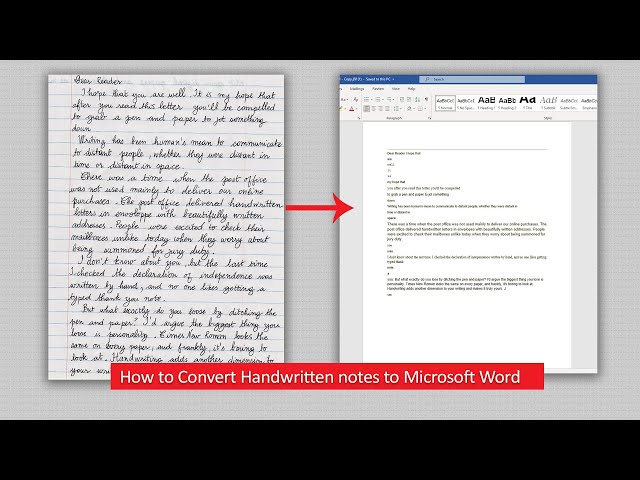 Dear Reader
I hope that you are well. It is my hope that
after you read this letter you'll be compelled
to grab a pen and paper to jot something
down
Writing has been human's mean to communicate
to distant people, whether they were distant in
time or distant in space.
There was a time when the post office
was not used mainly to deliver our online
purchases. The post office delivered handwritten
letters in enveloppe with beautifully written
addresses. People were excited to check their
mailboxes unlike today when they worry about
being summoned for jury duty.
I don't know about you, but the last time
I checked the declaration of independence was
written by hand, and no one likes getting a
typed thank you note.
But what exactly do you loose by ditching the
pen and paper? I'd argue the biggest thing you
lose is personality. Times New Roman looks the
same on every paper, and frankly, it's boring to
look at. Handwriting adds another dimension to
your
Saved to this PC
Mailings Review View Help
AaBbCcI AaBbCcI AaB AaBbC AaB AaBbC
Normal No Spac Heading 1 Heading 2 Title Subtitle
Paragraph Styles
Dear Reader I hope that
are
well.
my hope that
you after you read this letter you'll be compelled
to grab a pen and paper to jot something
down
Writing has been human's mean to communicate to distant people, whether they were distant in
time or distant in
space
There was a time when the post office was not used mainly to deliver our online purchases. The
post office delivered handwritten letters in envelopes with beautifully written addresses. People
were excited to check their mailboxes unlike today when they were worry about being summoned for
jury duty.
I don't know about the last time I checked the declaration of independence written by hand, and no one likes getting
typed thank
note.
you. But what exactly do you lose by ditching the pen and paper? I'd argue the biggest thing you lose is
personality. Times New Roman looks the same on every paper, and frankly, it's boring to look at
Handwriting adds another dimension to your writing and makes it truly yours
How to Convert Handwritten notes to Microsoft Word